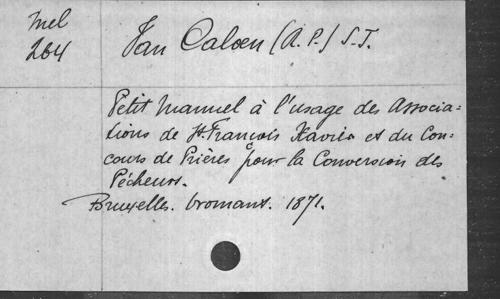 Mel
264
Van Caloen (A. P.) S.J.
Petit manuel à l'usage des Associa=
tions de St. François Xavier et du Con=
cours de Prières pour la Conversion des
Pécheurs.
Bruxelles. Vromant. 1871.